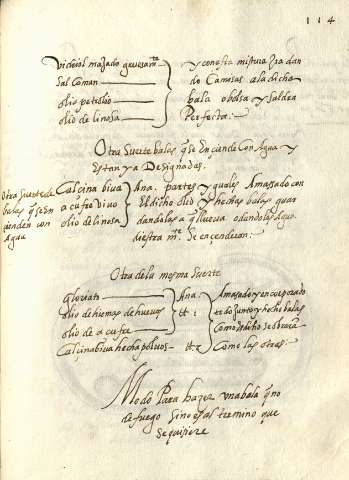 114
Vidriol majado gruesamte
Sal Coman
olio petrolio
olio de linosa
y conesta mistura yra dan
do Camisas ala dicha
bala obolsa y saldra
Perfecta:
Otra Suerte balas qe se Enciende Con Agua y
Estan ya Designadas.
Otra Suerte de
balas qe se En
cienden con
Agua
Calcina biua
acufre viuo
olio de linosa
Ana. partes yguales Amasado con
El dicho olio y hechas balas guar
dandolas a qe llueua odandoles Agua
diestra mte. Se encenderan:
Otra dela mesma Suerte
olio de hiemas de hueuos
olio de acufre
Calcina biua hecha poluos
Ana.
℔ 1
℔ 2
Amasado y encorporado
todo Junto y hecho balas
Como dicho se obrara
Como las otras:
Modo Para hazer una bala qe no
de fuego Sino es al termino que
Se quisiere